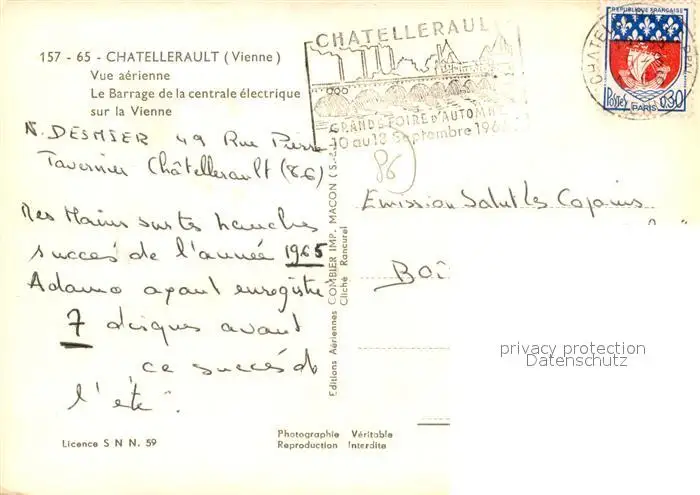 157 - 65 - CHATELLERAULT (Vienne)
Vue aérienne
Le Barrage de la centrale électrique
sur la Vienne
N. DESMIER 49 Rue Pierre
Tavernier Châtellerault (86)
Mes Mains sur tes hanches
succés de l'année 1965
Adamo ayant enregistré
7 disques avant
ce succés de
l'été".
Licence S N N. 59
CHATELLERAUL
GRANDE FOIRE D'AUTOMN
10 au 18 Septembre 196
REPUBLIQUE FRANÇAISE
Postes
PARIS
0,30
CHATEL
86
Editions Aériennes COMBIER IMP. MACON (S.
Cliché Rancurel
Emission Salut les Copains
BOÎ
privacy protection
Datenschutz
Photographie Véritable
Reproduction Interdite